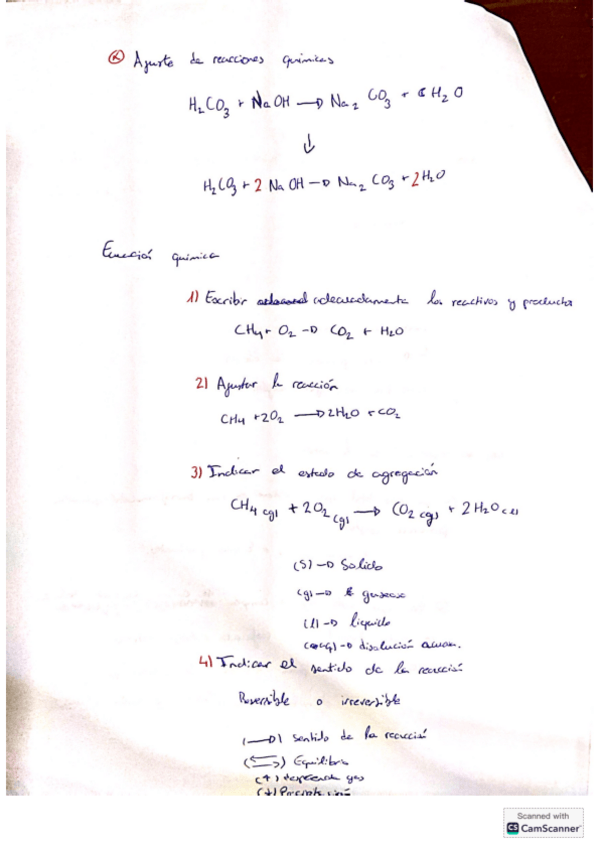 Ⓚ Ajuste de reacciones químicas
H₂CO₃ + NaOH → Na₂CO₃ + H₂O
↓
H₂CO₃ + 2 NaOH → Na₂CO₃ + 2H₂O
Ecuación química
1) Escribir adecuadamente los reactivos y productos
CH₄ + O₂ → CO₂ + H₂O
2) Ajustar la reacción
CH₄ + 2O₂ → 2H₂O + CO₂
3) Indicar el estado de agregación
CH₄ (g) + 2O₂ (g) → CO₂ (g) + 2H₂O (l)
(S) → Solido
(g) → gaseoso
(l) → liquido
(aq) → disolución acuosa.
4) Indicar el sentido de la reacción
Reversible o irreversible
(→) sentido de la reacción
(⇆) Equilibrio
(↑) desprende gas
(↓) Precipitación
Scanned with
CS CamScanner